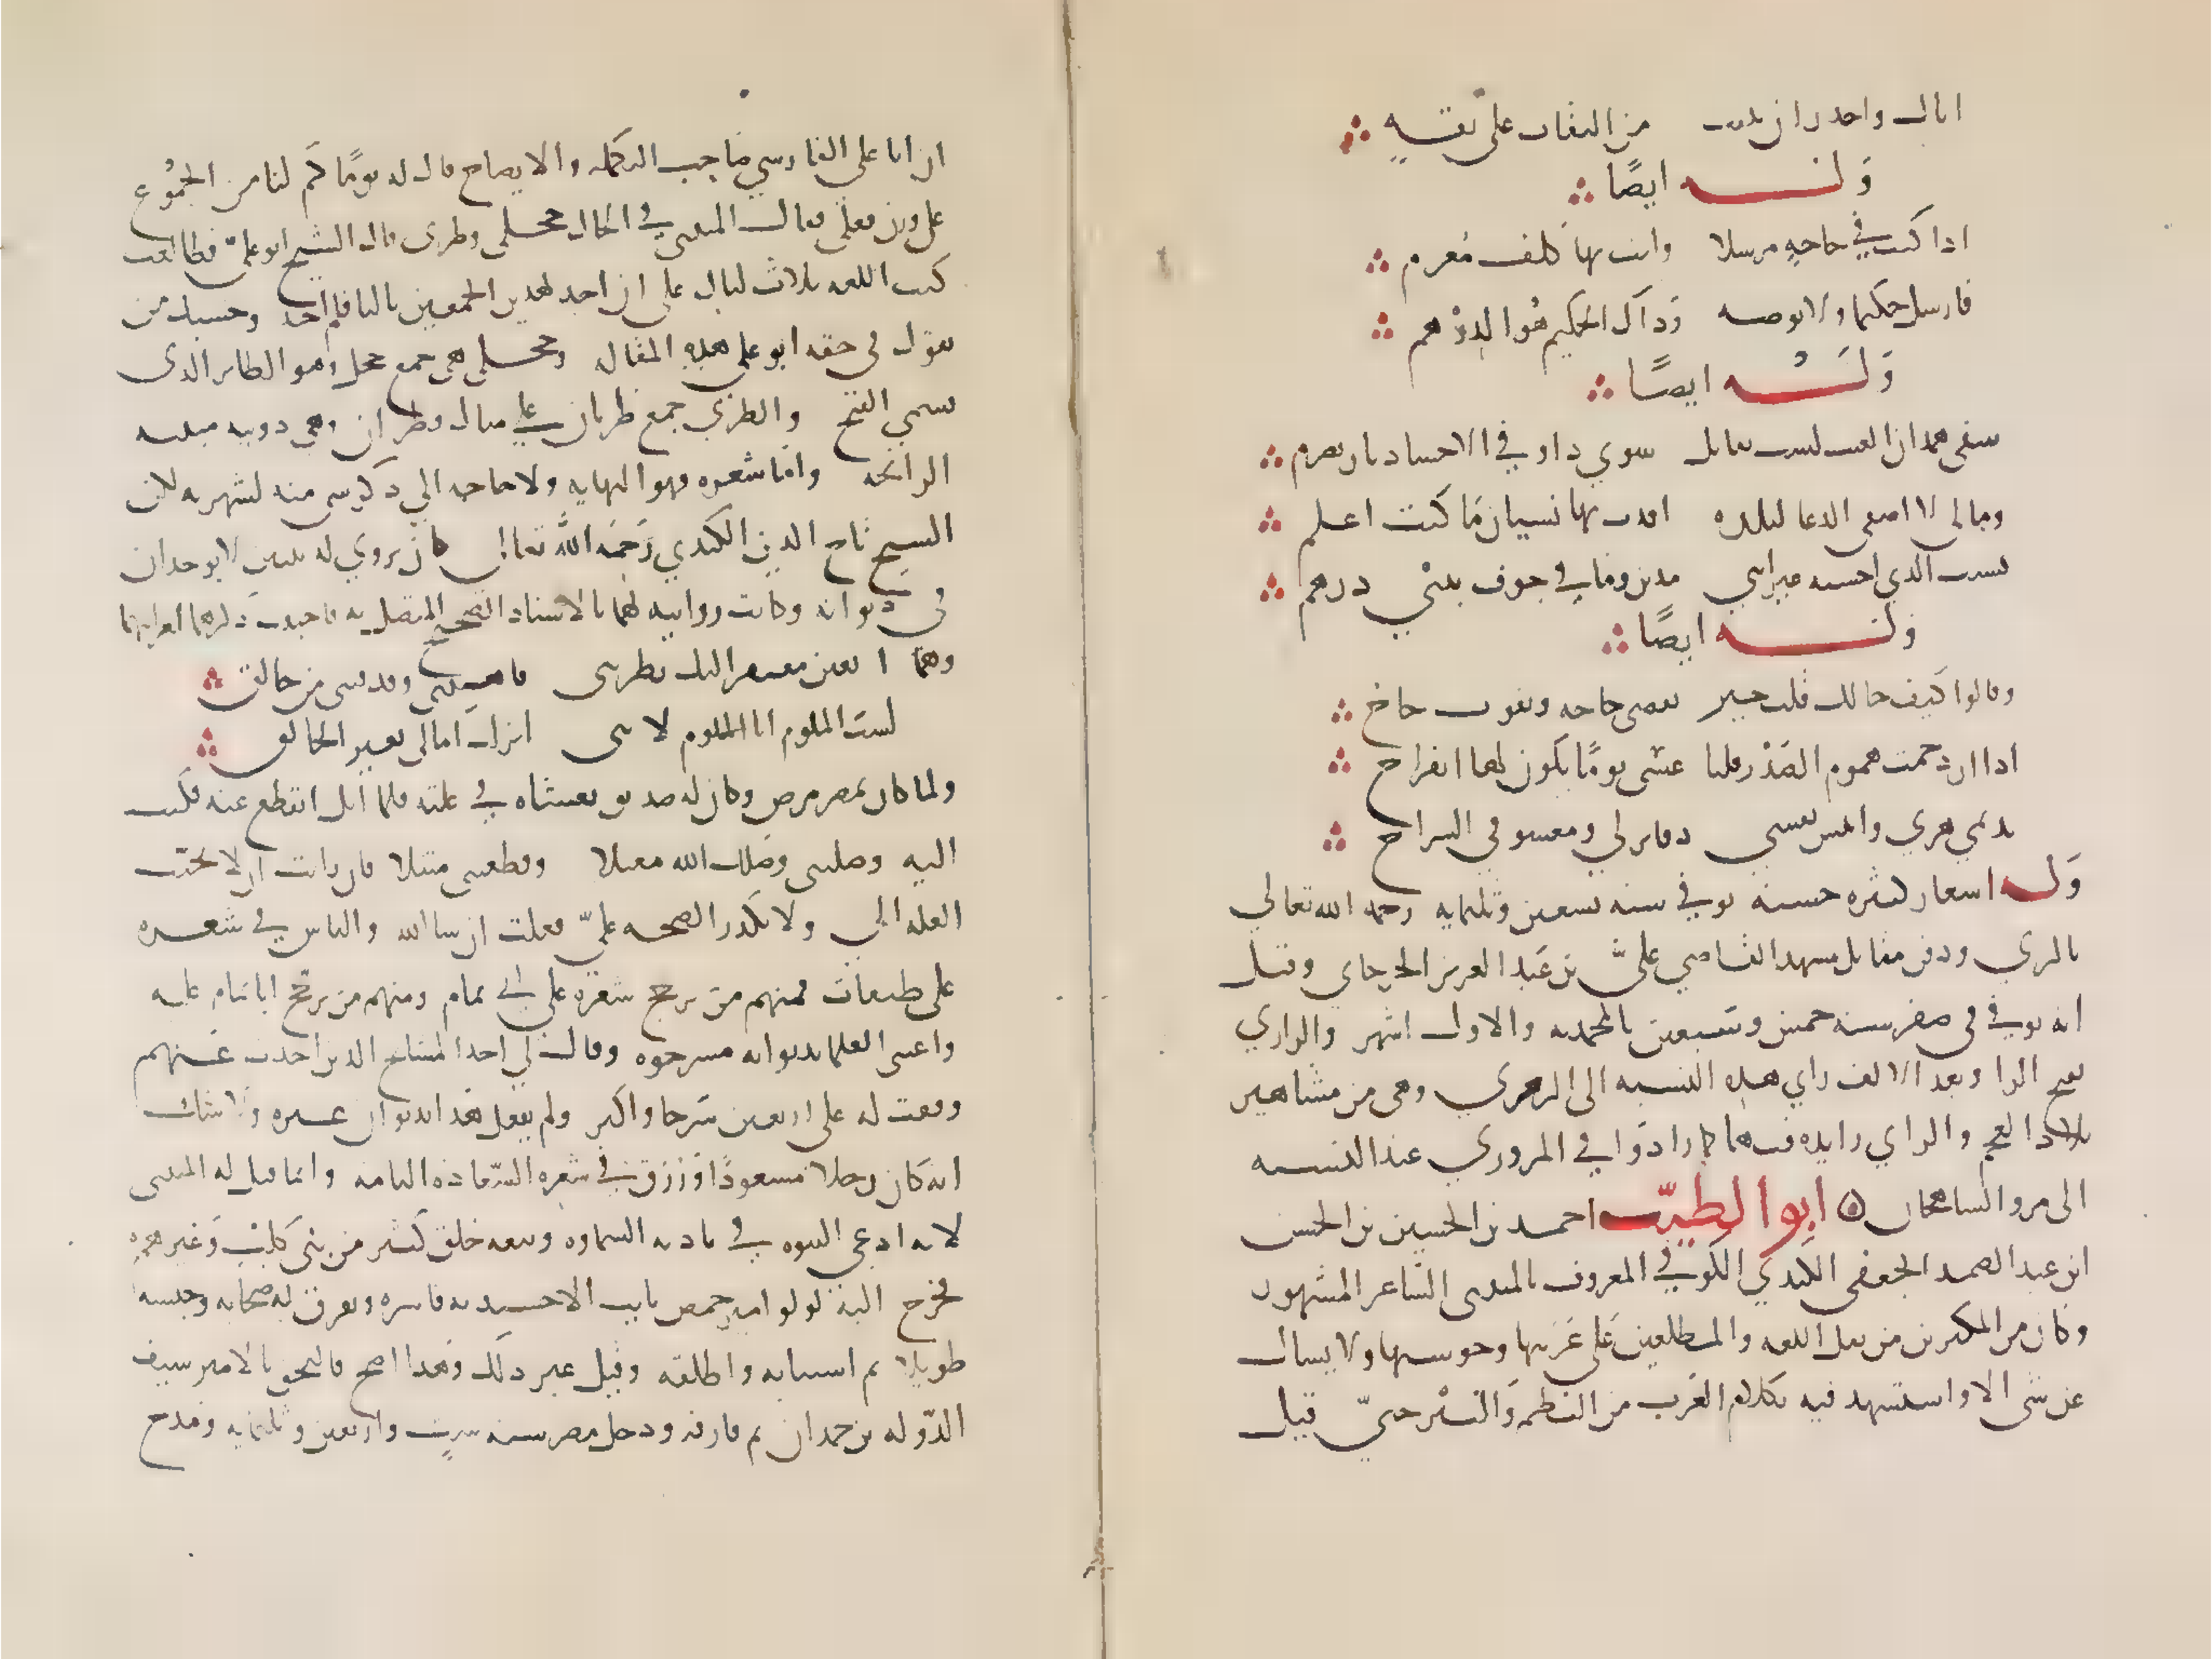 اياك واحذر ان تبيت من الثقات على ثقه
وله ايضًا
اذا كنت في حاجه مرسلا وانت بها كلف مغرم
فارسل حكيما ولا توصه وذاك الحكيم هو الدرهم
وله ايضًا
سقى همدان الغيث لست بقايل سوي ذا وفي الاحشاء نار تضرم
ومالي لا اصفي الدعا لبلدة افدت بها نسيان ما كنت اعلم
نسيت الذي احسنته غير انني مدين وما في جوف بيتي درهم
وله ايضًا
وقالوا كيف حالك قلت خير تقضى حاجه وتفوت حاج
اذا ازدحمت هموم الصدر قلنا عسى يومًا يكون لها انفراج
نديمي هرتي وانيس نفسي دفاتر لي ومعشوقي السراج
وله اشعار كثيره حسنه توفي سنه تسعين وثلثمايه رحمه الله تعالي
بالري ودفن مقابل مشهد القاضي علي بن عبد العزيز الجرجاني وقيل
انه توفي في صفر سنه خمس وسبعين بالمحمديه والاول اشهر والرازي
بفتح الرا وبعد الالف زاي هذه النسبه الى الري وهي من مشاهير
بلاد العجم والزاي زايده فيها كما زادوا في المروزي عند النسبه
الى مرو الشاهجان ابو الطيب احمد بن الحسين بن الحسن
ابن عبد الصمد الجعفي الكندي الكوفي المعروف بالمتنبي الشاعر المشهور
وكان من المكثرين من نقل اللغه والمطلعين على غريبها وحوشيها ولا يسال
عن شي الا واستشهد فيه بكلام العرب من النظم والنثر حتي قيل
ان ابا علي الفارسي صاحب التكمله والايضاح قال له يومًا كم لنا من الجموع
على وزن فعلى فقال المتنبي في الحال حجلي وظربي قال الشيخ ابو علي فطالعت
كتب اللغه ثلاث ليال على ان اجد لهذين الجمعين ثالثا فلم اجد وحسبك من
يقول في حقه ابو علي هذه المقاله وحجلي هي جمع حجل وهو الطاير الذي
يسمى القبج والظربي جمع ظربان علي مثال قطران وهي دويبه منتنه
الرائحه واما شعره فهو النهايه ولا حاجه الي ذكر شي منه لشهرته لكن
الشيخ تاج الدين الكندي رحمه الله تعالى كان يروي له بيتين لا يوجدان
في ديوانه وكانت روايته لهما بالاسناد الصحيح المتصل به فاحببت ذكرهما لغرابتهما
وهما ابعين مفتقر اليك نظرتني فاهنتني وقذفتني من حالق
لست الملوم انا الملوم لانني انزلت امالي بغير الخالق
ولما كان بمصر مرض وكان له صديق يغشاه في علته فلما ابل انقطع عنه فكتب
اليه وصلتني وصلك الله معتلا وقطعتني مبتلا فان رايت ان لا تحبب
العله الي ولا تكدر الصحه علي فعلت ان شا الله والناس في شعره
على طبقات فمنهم من يرجح شعره على ابي تمام ومنهم من يرجح ابا تمام عليه
واعتنى العلما بديوانه فشرحوه وقال لي احد المشايخ الذين اخذت عنهم
وقفت له على اربعين شرحا واكثر ولم يفعل هذا بديوان غيره ولا شك
انه كان رجلا مسعودًا ورزق في شعره السعاده التامه وانما قيل له المتنبي
لانه ادعي النبوه في باديه السماوه وتبعه خلق كثير من بني كلب وغيرهم
فخرج اليه لولو امير حمص نايب الاخشيديه فاسره وتفرق اصحابه وحبسه
طويلا ثم استتابه واطلقه وقيل غير ذلك وهذا اصح فالتحق بالامير سيف
الدوله بن حمدان ثم فارقه ودخل مصر سنه ست واربعين وثلثمايه ومدح